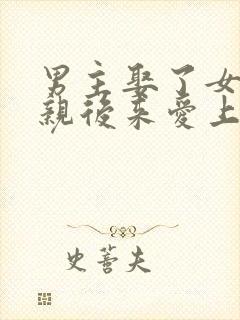 男主娶了女
親後來愛上
史蕾夫